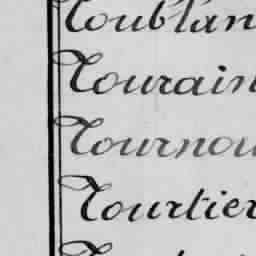 Toublan
Tourain
Tournou
Tourtier